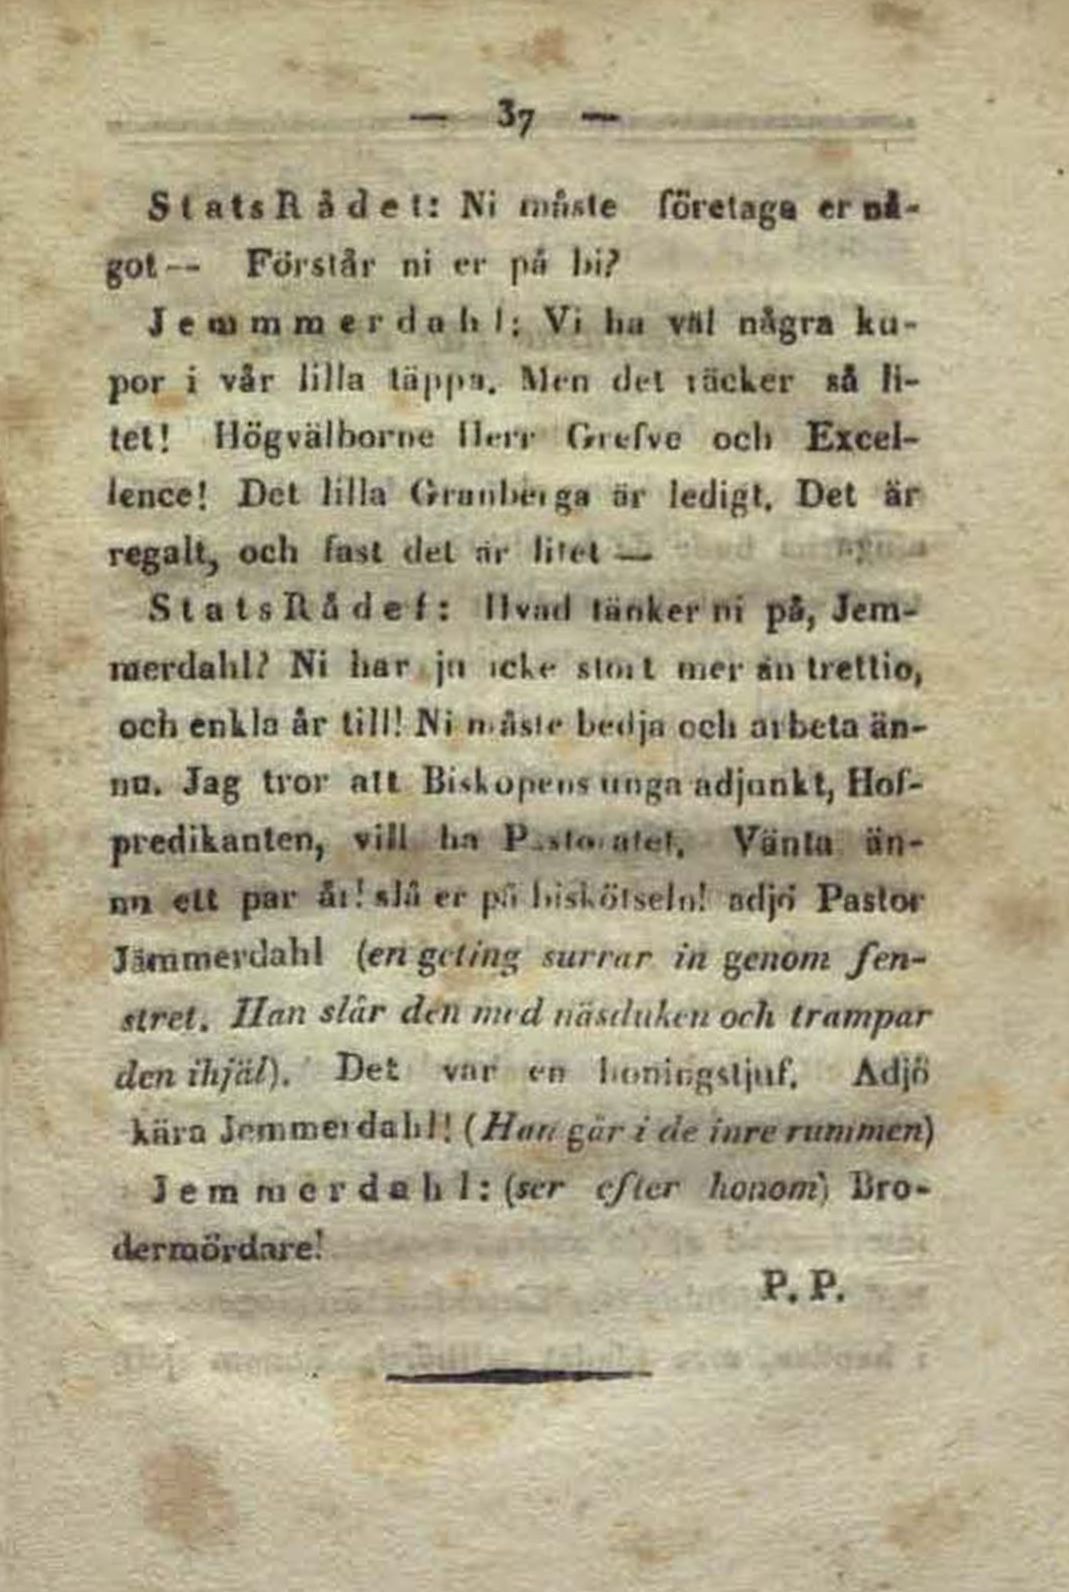 — 37 —
StatsRådet: Ni måste företaga er nå-
got -- Förstår ni er på bi?
Jemmmerdahl: Vi ha väl några ku-
por i vår lilla täppa. Men det räcker så li-
tet! Högvälborne Herr Grefve och Excel-
lence! Det lilla Granberga är ledigt. Det är
regalt, och fast det är litet —
StatsRådet: Hvad tänker ni på, Jem-
merdahl? Ni har ju icke stort mer än trettio,
och enkla år till! Ni måste bedja och arbeta än-
nu. Jag tror att Biskopens unga adjunkt, Hof-
predikanten, vill ha Pastoratet. Vänta än-
nu ett par år! slå er på biskötseln! adjö Pastor
Jämmerdahl (en geting surrar in genom fen-
stret. Han slår den med näsduken och trampar
den ihjäl). Det var en honingstjuf. Adjö
kära Jemmerdahl! (Han går i de inre rummen)
Jemmerdahl: (ser efter honom) Bro-
dermördare!
P. P.